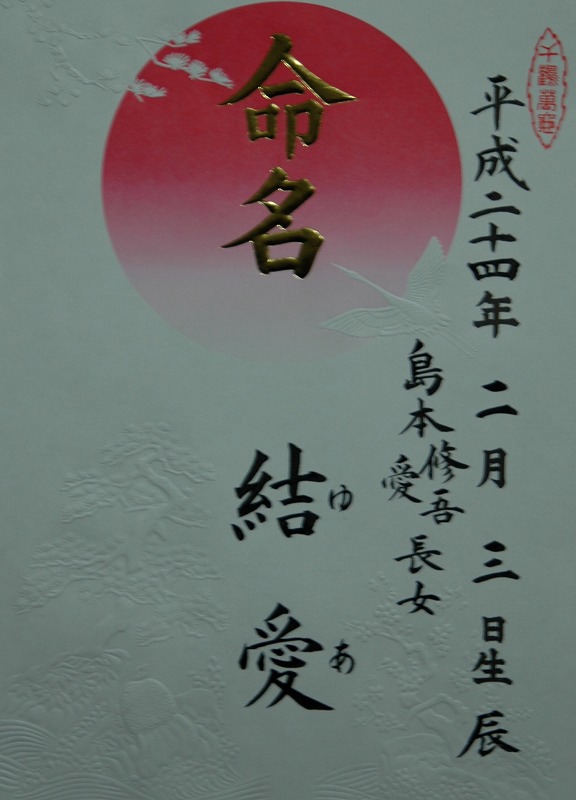 千鶴萬亀
平成二十四年 二月 三日生 辰
島本修吾
愛
長女
命名
結愛
ゆあ